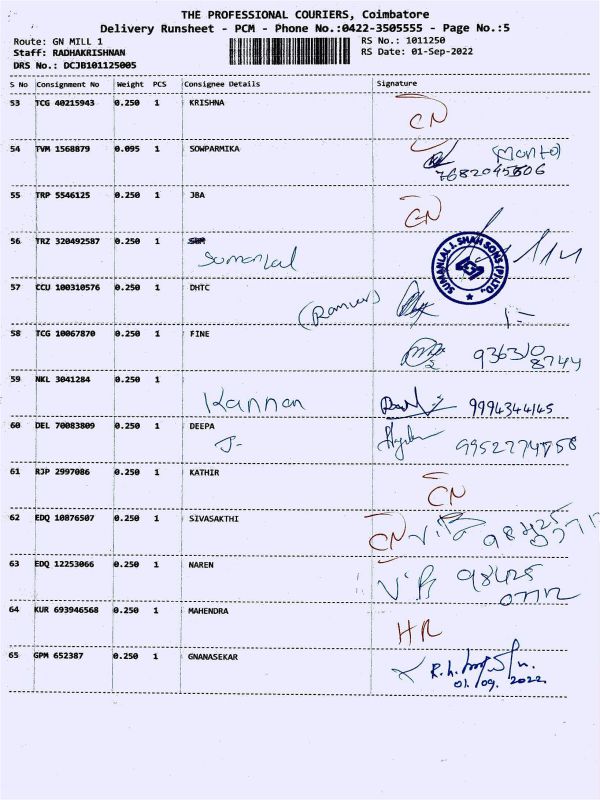 THE PROFESSIONAL COURIERS, Coimbatore
Delivery Runsheet - PCM - Phone No.:0422-3505555 - Page No.:5
Route: GN MILL 1 RS No.: 1011250
Staff: RADHAKRISHNAN RS Date: 01-Sep-2022
DRS No.: DCJB101125005
S No Consignment No Weight PCS Consignee Details Signature
53 TCG 40215943 0.250 1 KRISHNA
CN
54 TVM 1568879 0.095 1 SOWPARMIKA
55 TRP 5546125 0.250 1 JBA
CN
56 TRZ 320492587 0.250 1
Sumanlal
SUMANLAL J. SHAH SONS (P) LTD.
57 CCU 100310576 0.250 1 DHTC
58 TCG 10067870 0.250 1 FINE
936310
8744
59 NKL 3041284 0.250 1
Kannan 9994344145
60 DEL 70083809 0.250 1 DEEPA
J- 9952274758
61 RJP 2997086 0.250 1 KATHIR
CN
62 EDQ 10876507 0.250 1 SIVASAKTHI
CN 98425
07712
63 EDQ 12253066 0.250 1 NAREN
98425
07712
64 KUR 693946568 0.250 1 MAHENDRA
HR
65 GPM 652387 0.250 1 GNANASEKAR
01.09.2022